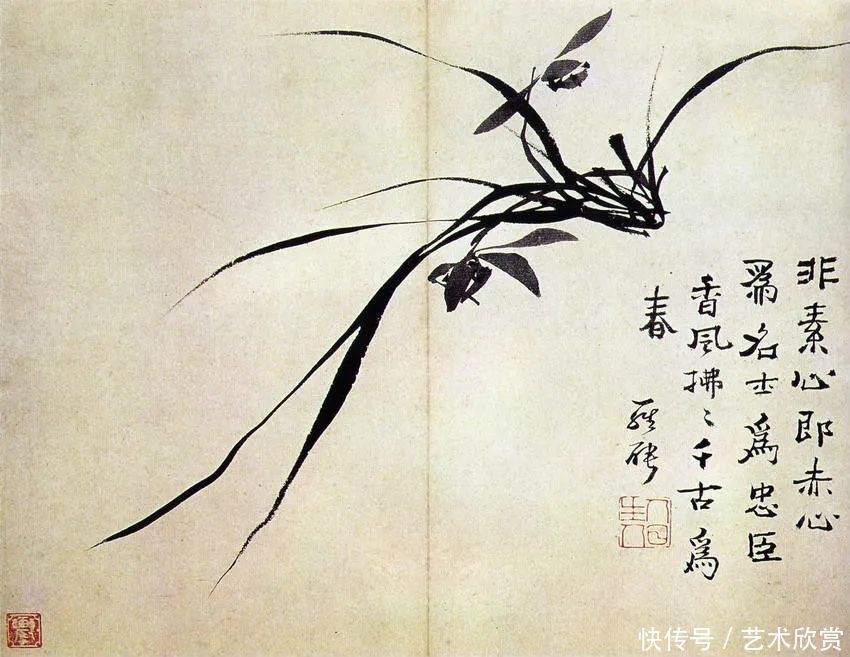 非素心即赤心
爲名士爲忠臣
香風拂〻千古爲
春
快传号 / 艺术欣赏